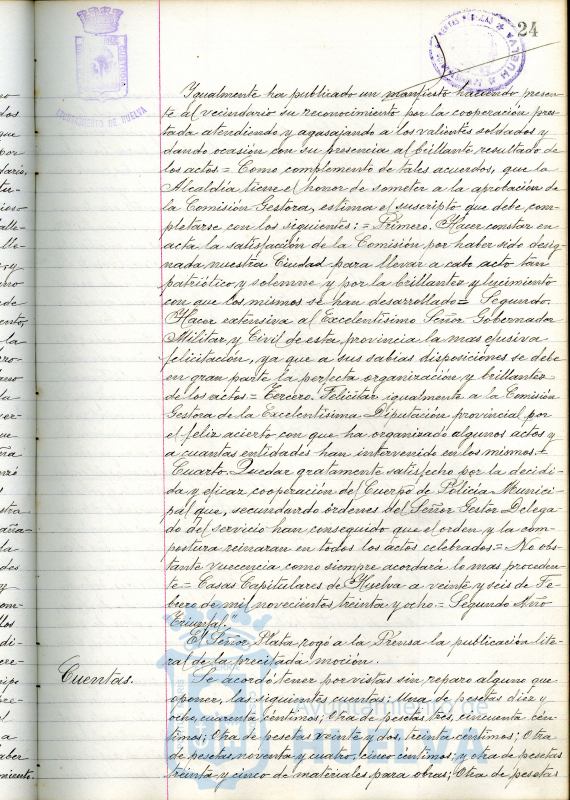 24
AYUNTAMIENTO DE HUELVA
Igualmente ha publicado un manifiesto haciendo presen-
te al vecindario su reconocimiento por la cooperación pres-
tada atendiendo y agasajando a los valientes soldados y
dando ocasión con su presencia al brillante resultado de
los actos = Como complemento de tales acuerdos, que la
Alcaldía tiene el honor de someter a la aprobación de
la Comisión Gestora, estima el suscripto que debe com-
pletarse con los siguientes: = Primero. Hacer constar en
acta la satisfacción de la Comisión por haber sido desig-
nada nuestra Ciudad para llevar a cabo acto tan
patriótico y solemne y por la brillantez y lucimiento
con que los mismos se han desarrollado = Segundo.
Hacer extensiva al Excelentísimo Señor Gobernador
Militar y Civil de esta provincia la mas efusiva
felicitación, ya que a sus sabias disposiciones se debe
en gran parte la perfecta organización y brillantez
de los actos = Tercero. Felicitar igualmente a la Comisión
Gestora de la Excelentísima Diputación provincial por
el feliz acierto con que ha organizado algunos actos y
a cuantas entidades han intervenido en los mismos =
Cuarto. Quedar gratamente satisfecho por la decidi-
da y eficaz cooperación del Cuerpo de Policía Munici-
pal que, secundando órdenes del Señor Gestor Delega-
do del servicio han conseguido que el orden y la com-
postura reinaran en todos los actos celebrados = No obs-
tante vuecencia como siempre acordará lo mas proceden-
te = Casas Capitulares de Huelva a veinte y seis de Fe-
brero de mil novecientos treinta y ocho = Segundo Año
Triunfal."
El Señor Plata rogó a la Prensa la publicación lite-
ral de la precitada moción.
Cuentas.
Se acordó tener por vistas sin reparo alguno que
oponer, las siguientes cuentas: Una de pesetas diez y
ocho, cuarenta céntimos; Otra de pesetas tres, cincuenta cén-
timos; Otra de pesetas veinte y dos, treinta céntimos; Otra
de pesetas noventa y cuatro, cinco céntimos; y otra de pesetas
treinta y cinco de materiales para obras; Otra de pesetas
Ayuntamiento de
HUELVA